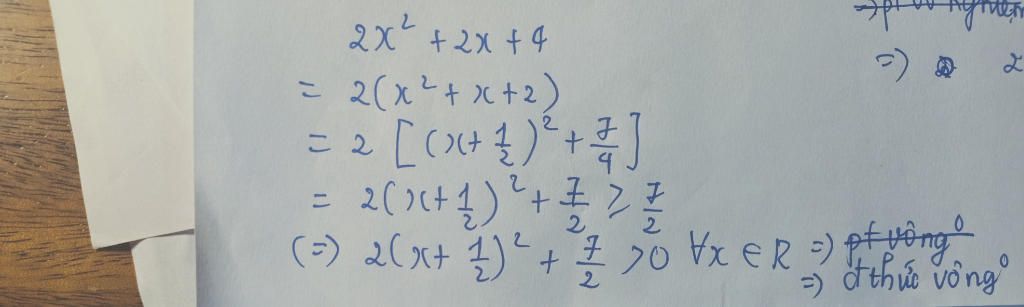 2x² + 2x + 4
= 2(x² + x + 2)
= 2 [(x + 1/2)² + 7/4]
= 2(x + 1/2)² + 7/2 ≥ 7/2
(=) 2(x + 1/2)² + 7/2 > 0 ∀x ∈ R => pt vô ng⁰
=> đthức vô ng⁰
=> pt vô nghiệm
=> 2